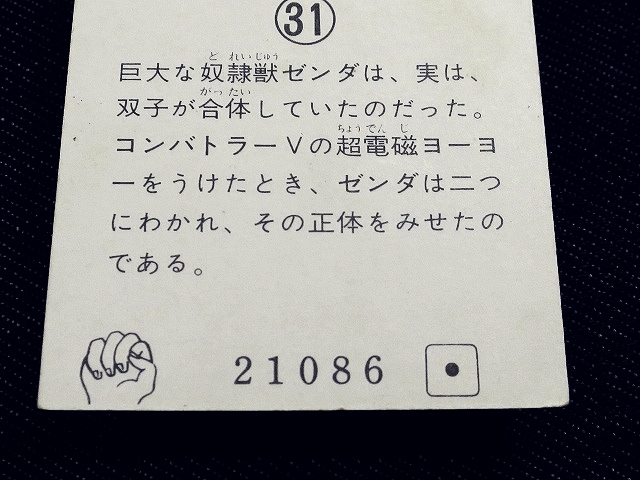 31
巨大な奴隷獣ゼンダは、実は、
双子が合体していたのだった。
コンバトラーVの超電磁ヨーヨ
ーをうけたとき、ゼンダは二つ
にわかれ、その正体をみせたの
である。
21086